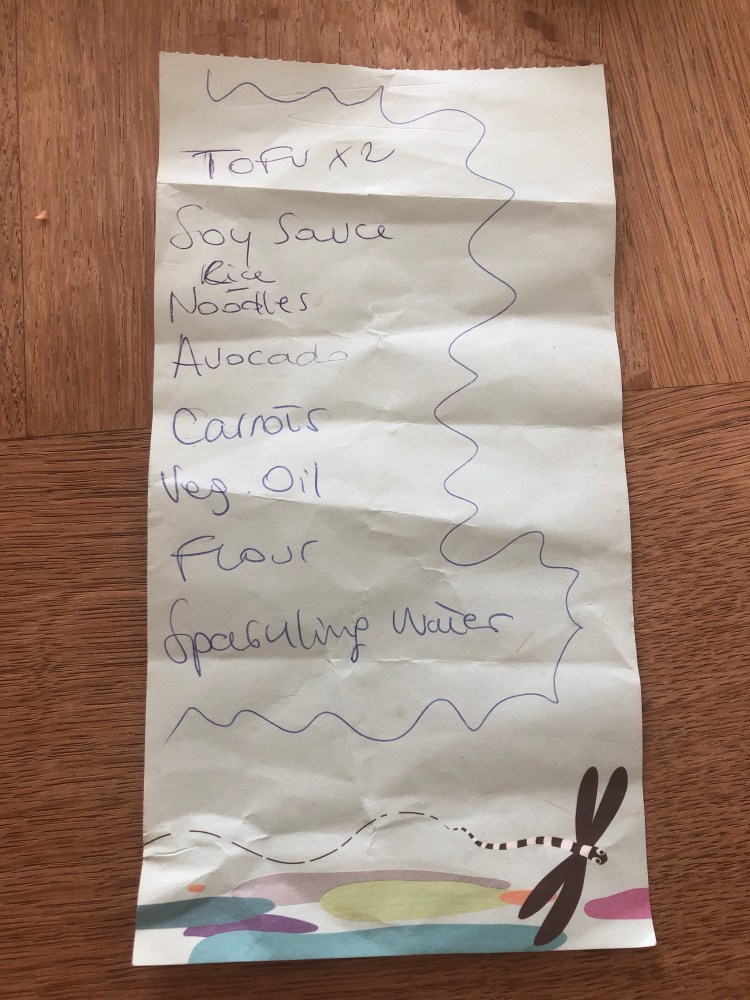 Tofu x2
Soy Sauce
Rice
Noodles
Avocado
Carrots
Veg. Oil
Flour
Sparkling Water